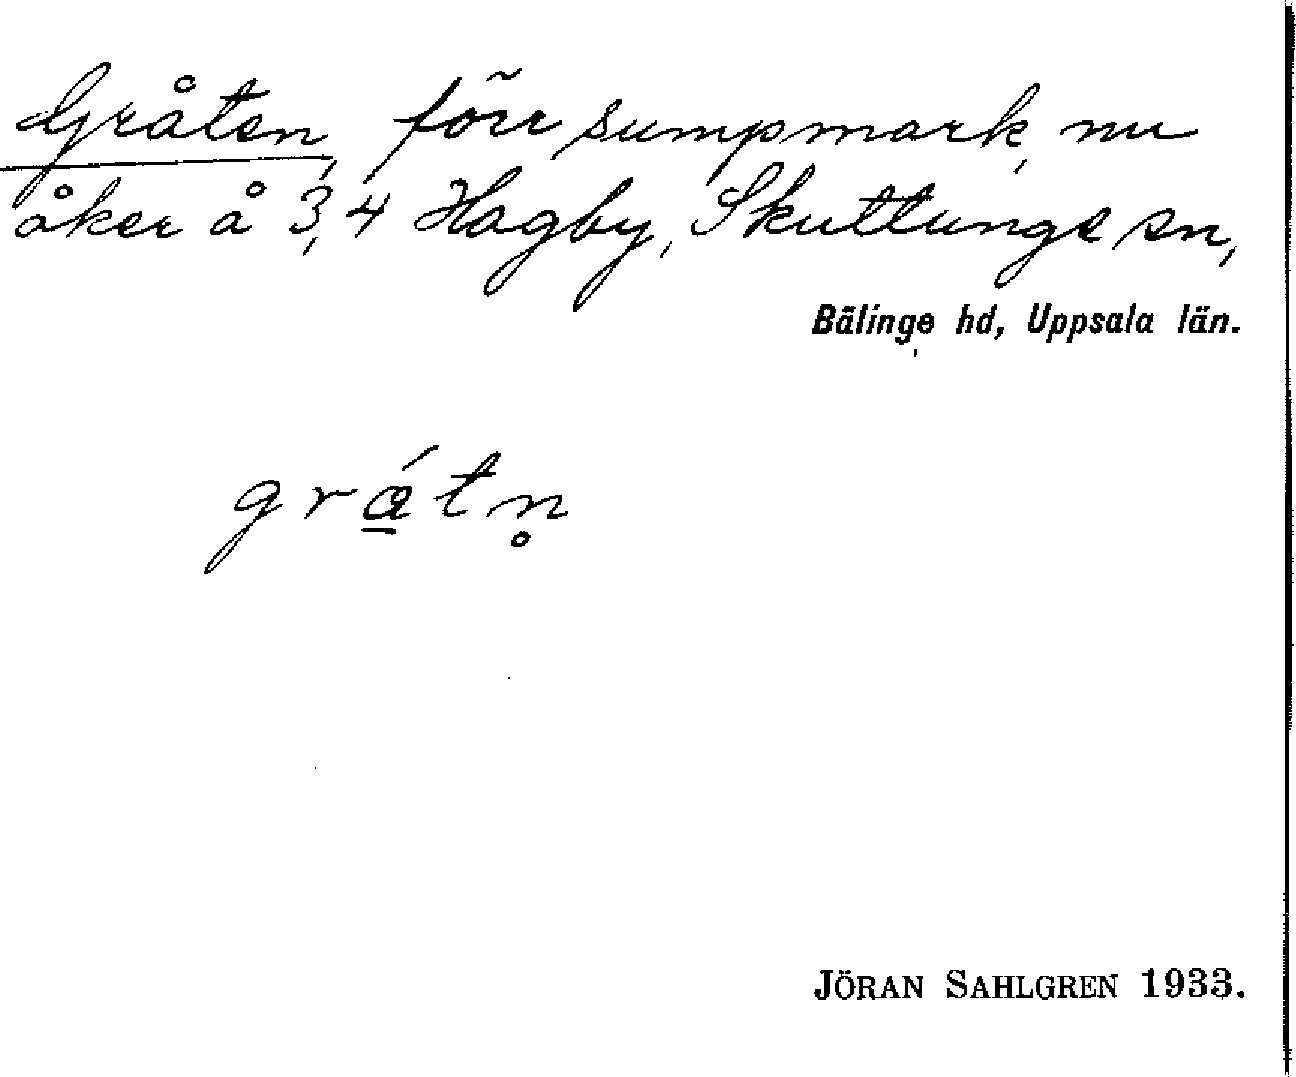 Gråten, förr sumpmark, nu
åker å 3, 4 Hagby, Skuttunge sn,
Bälinge hd, Uppsala län.
grą̊́tn̥
JÖRAN SAHLGREN 1933.